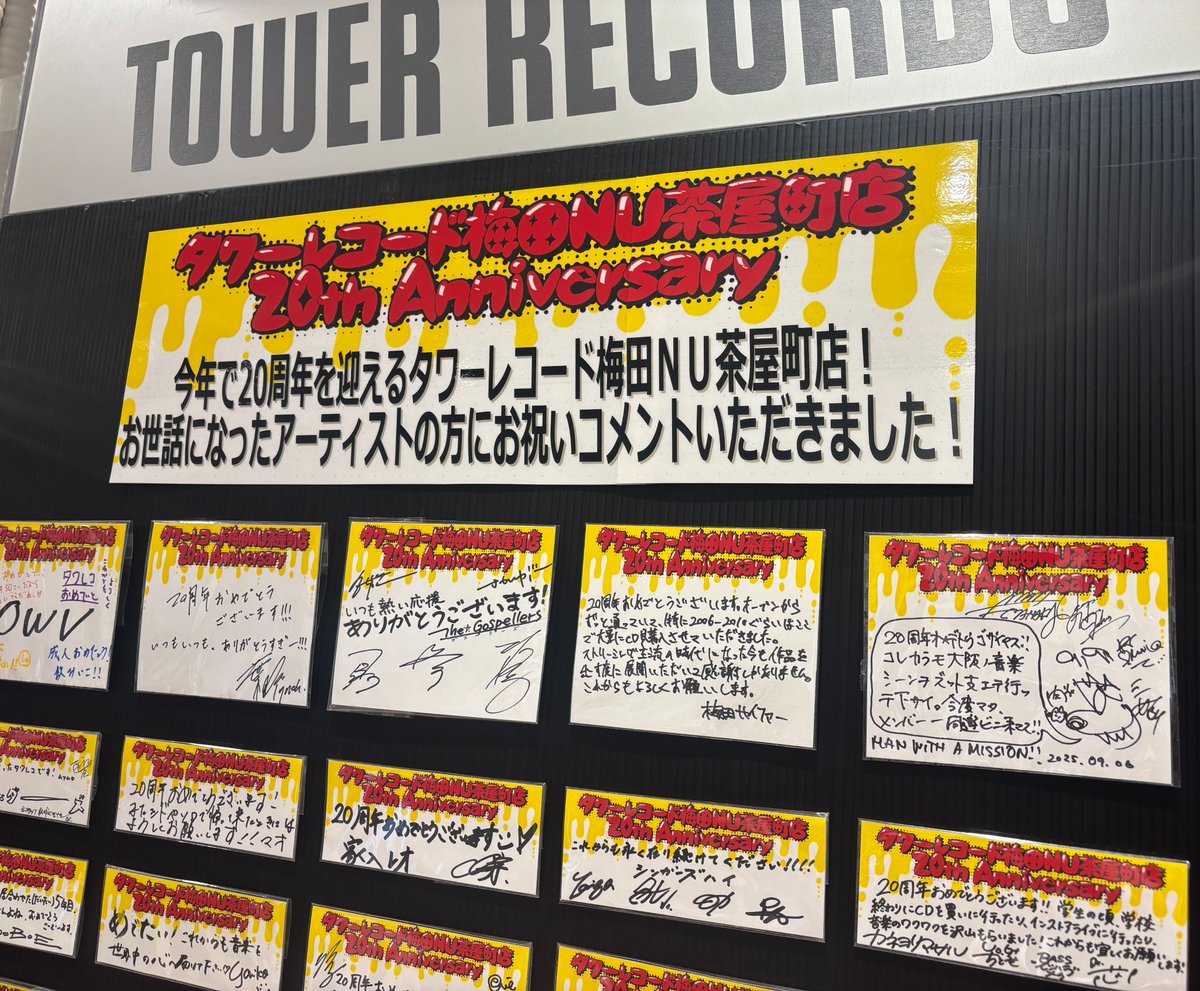 TOWER RECORDS
タワーレコード梅田NU茶屋町店
20th Anniversary
今年で20周年を迎えるタワーレコード梅田NU茶屋町店！
お世話になったアーティストの方にお祝いコメントいただきました！
タワーレコード梅田NU茶屋町店
20th Anniversary
タワレコ
おめでと
OWV
タワーレコード梅田NU茶屋町店
20th Anniversary
20周年おめでとう
ございます!!!
いつもいつも、ありがとうすぎー!!!
タワーレコード梅田NU茶屋町店
20th Anniversary
いつも熱い応援
ありがとうございます!
The★Gospellers
タワーレコード梅田NU茶屋町店
20th Anniversary
20周年おめでとうございます。オープンから
ずっと通っていて、特に2006-2010ぐらいはここ
で大量にCD購入させていただきました。
ストリーミングで主流の時代になった今も作品を
必ず店に展開いただいて感謝しかありません。
これからもよろしくお願いします。
梅田サイファー
タワーレコード梅田NU茶屋町店
20th Anniversary
20周年オメデトウゴザイマス!!
コレカラモ大阪ノ音楽
シーンヲズット支エテ行ッ
テ下サイ。今度マタ、
メンバー一同遊ビニ来マス!!
MAN WITH A MISSION!! 2025.09.06
タワーレコード梅田NU茶屋町店
20th Anniversary
20周年おめでとうございます!
よろしくお願いします!!マオ
タワーレコード梅田NU茶屋町店
20th Anniversary
20周年おめでとうございます
家入レオ
タワーレコード梅田NU茶屋町店
20th Anniversary
これからも永く在り続けてください!!!!
シンガーズハイ
タワーレコード梅田NU茶屋町店
20th Anniversary
20周年おめでとうございます!! 学生の頃、学校
終わりにCDを買いに行ったり、インストアライブに行ったり、
音楽のワクワクを沢山もらいました!これからも宜しくお願いします!
カネヨリマサル
20th Anniversary
BOE
タワーレコード梅田NU茶屋町店
20th Anniversary
めでたい!! これからも音楽を
世界中の心へ届けて下さい
タワーレコード梅田NU茶屋町店
20th Anniversary
20周年おめ
タワーレコード梅田NU茶屋町店
20th Anniversary